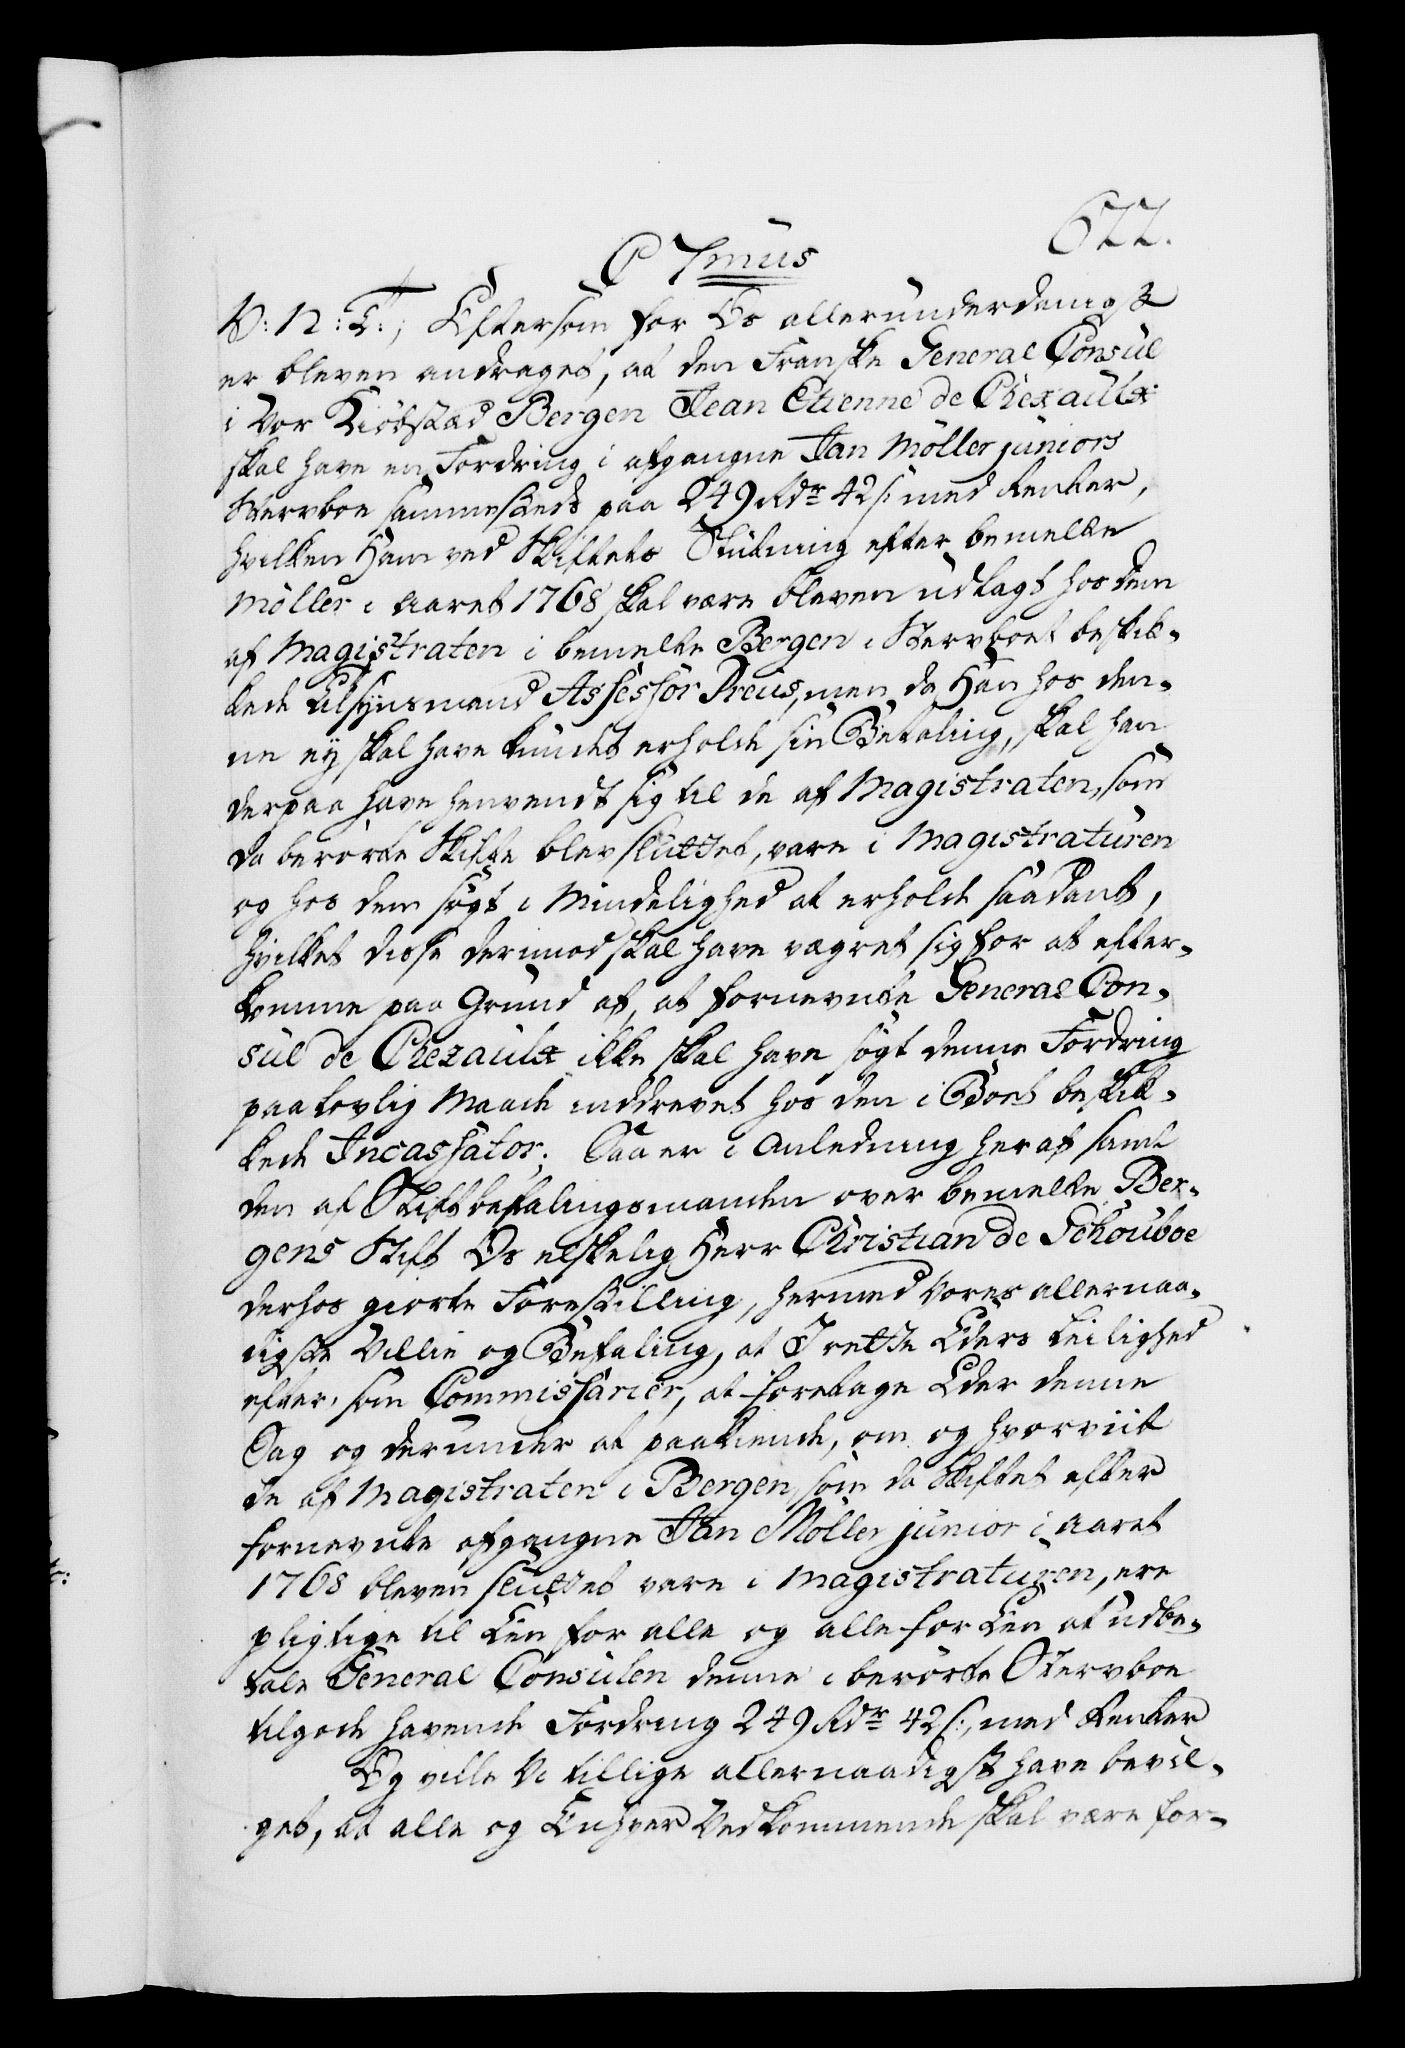 677.
C 7mus
V: N: T:, Eftersom for Os allerunderdanigst
er bleven andraget, at den Franske General Consul
i Vor Kiöbstæd Bergen Jean Etienne de Chezaulx
skal have en Fordring i afgangne Jan Möller juniors
Stervboe sammesteds paa 249 Rdr 42 s: med Renter,
hvilken Ham ved Skiftets Slutning efter bemelte
Möller i Aaret 1768 skal være bleven udlagt hos dem
af Magistraten i bemelte Bergen i Stervboet beskik-
kede tilsynsmand Assessor Preus, men da Han hos den-
ne ey skal have kundet erholde sin Betaling, skal han
derpaa have henvendt sig til de af Magistraten, som
da berörte Skifte blev sluttet, vare i Magistraturen
og hos dem sögt i Mindelighed at erholde saadant,
hvilket disse derimod skal have vægret sig for at efter-
komme paa Grund af, at fornevnte General Con-
sul de Chezaulx ikke skal have sögt denne Fordring
paa lovlig Maade inddrevet hos den i Boet beskik-
kede Incassator; Saa er i Anledning heraf samt
den af Stiftbefalingsmanden over bemelte Ber-
gens Stift Os elskelig Herr Christian de Schouboe
derhos giorte Forestilling, hermed Vores allernaa-
digste Villie og Befaling, at I rette Eders Leilighed
efter, som Commissarier, at foretage Eder denne
Sag og derunder at paakiende, om og hvorviit
de af Magistraten i Bergen, som da Skiftet efter
fornevnte afgangne Jan Möller junior i Aaret
1768 bleven sluttet vare i Magistraturen, ere
pligtige til Een for alle og alle for Een at udbe-
tale General Consulen denne i berörte Stervboe
tilgode havende Fordring 249 Rdr 42 s:, med Renter
Og ville Vi tillige allernaadigst have bevil-
get, at alle og Enhver Vedkommende skal være for-